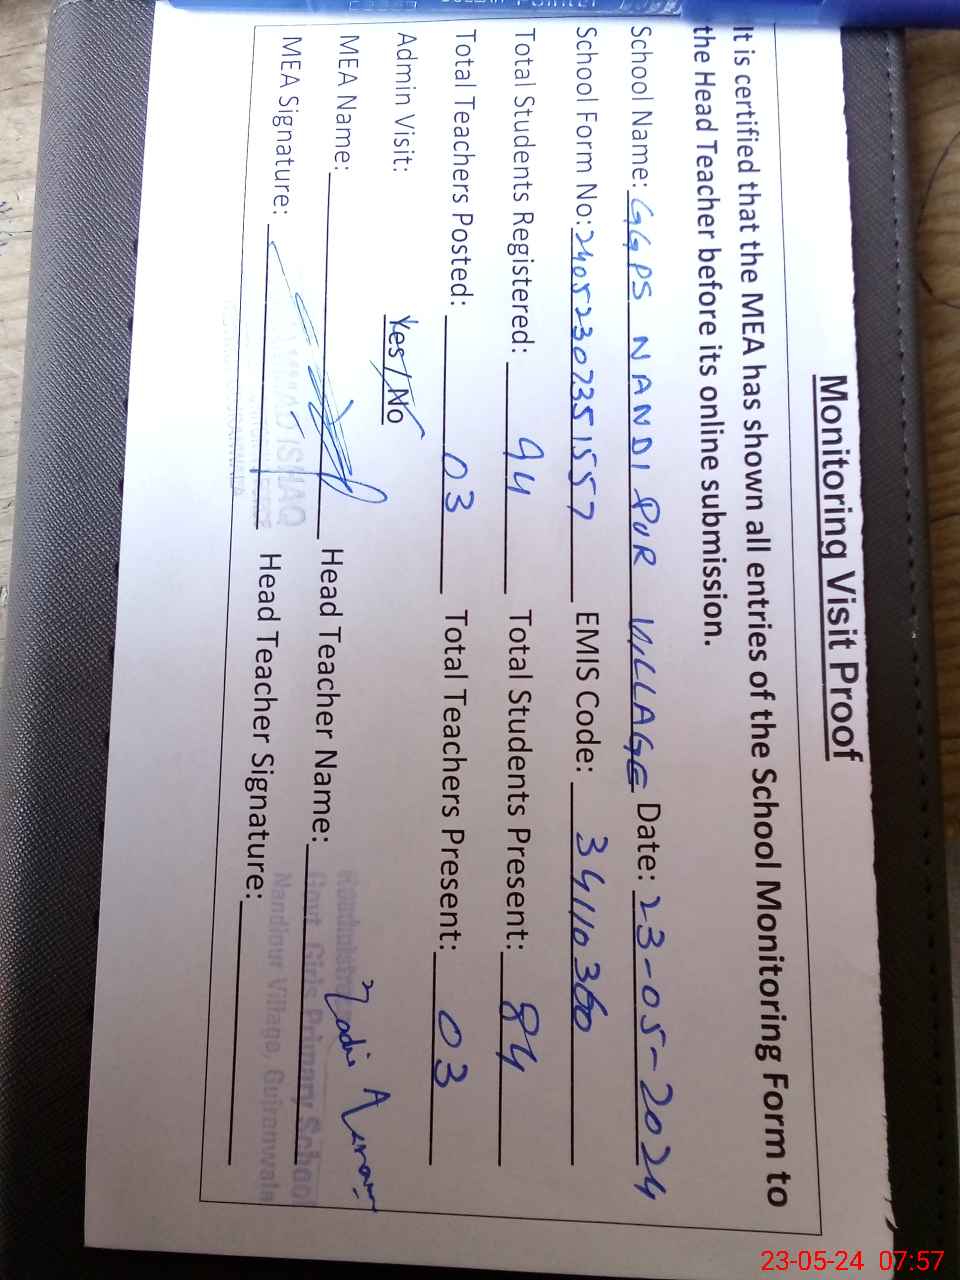 Monitoring Visit Proof
It is certified that the MEA has shown all entries of the School Monitoring Form to
the Head Teacher before its online submission.
School Name: GGPS NANDI PUR VILLAGE Date: 23-05-2024
School Form No: 2405230735157 EMIS Code: 34110360
Total Students Registered: 94 Total Students Present: 84
Total Teachers Posted: 03 Total Teachers Present: 03
Admin Visit: Yes/No
MEA Name: Head Teacher Name:
MEA Signature: Head Teacher Signature:
Govt. Girls Primary School
Nandipur Village, Gujranwala
23-05-24 07:57